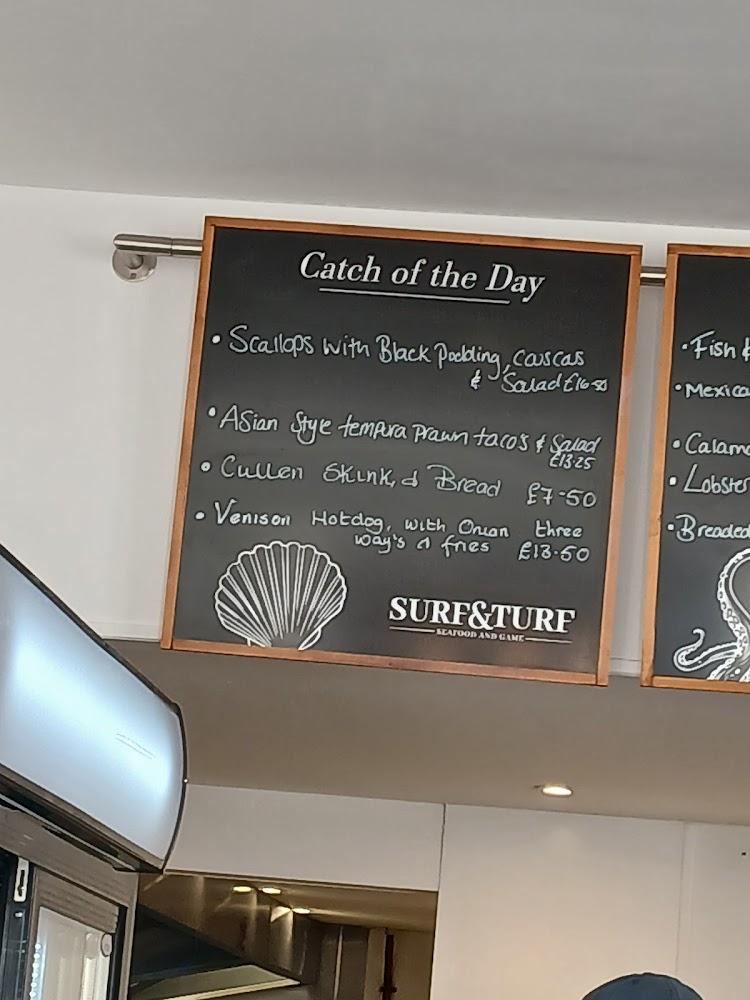 Catch of the Day
• Scallops with Black Pudding, couscas
& Salad £16-50
• Asian Style tempura prawn tacos & Salad
£13.25
• Cullen Skink, & Bread £7-50
• Venison Hotdog, with Onion three
way's & fries £13.50
SURF&TURF
SEAFOOD AND GAME
• Fish &
• Mexica
• Calam
• Lobster
• Breaded